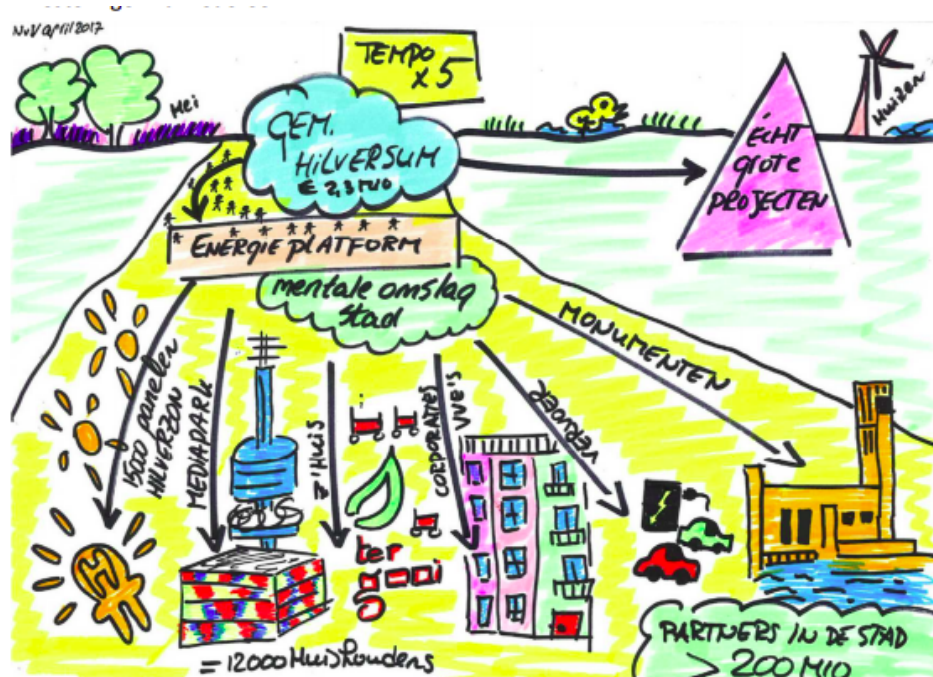 NvV april 2017
TEMPO
x 5
Hei
GEM.
HILVERSUM
€ 2,3 MIO
Huizen
ECHT
grote
PROJECTEN
ENERGIE PLATFORM
mentale omslag
stad
1500 panelen
HILVERZON
MEDIAPARK
Z'HUIS
CORPORATIES
VVE'S
VERVOER
MONUMENTEN
ter
gooi
= 12000 Huishoudens
PARTNERS IN DE STAD
> 200 MIO